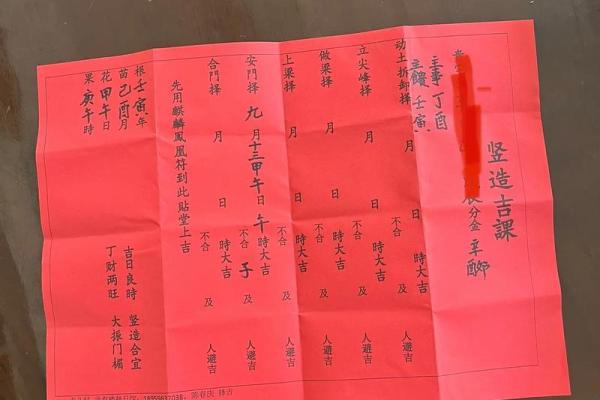 竖造吉課
分金 辛酉卯
主事 丁酉
主饋 壬寅
动土拆卸择 月 日 不合 時大吉 及 人避吉
立尖峰择 月 日 不合 時大吉 及 人避吉
做梁择 月 日 不合 時大吉 及 人避吉
上梁择 月 日 不合 時大吉 及 人避吉
安門择 九月十三甲午日 午時大吉 不合 子 及 人避吉
合門择 月 日 不合 時大吉 及 人避吉
先用麒麟鳳凰符到此貼堂上吉
根 壬寅年
苗 己酉月
花 甲午日
果 庚午時
吉日良時 竖造合宜
丁财两旺 大振门楣
18359637038，陈春庆 择吉